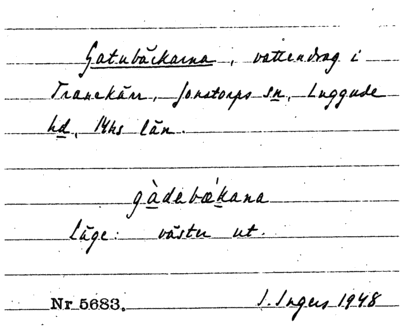 Gatubäckarna, vattendrag i
Tranekärr, Jonstorps sn, Luggude
hd, Mhs län.
gàdebæ̀kana
Läge: väster ut.
Nr 5683. I. Ingers 1948